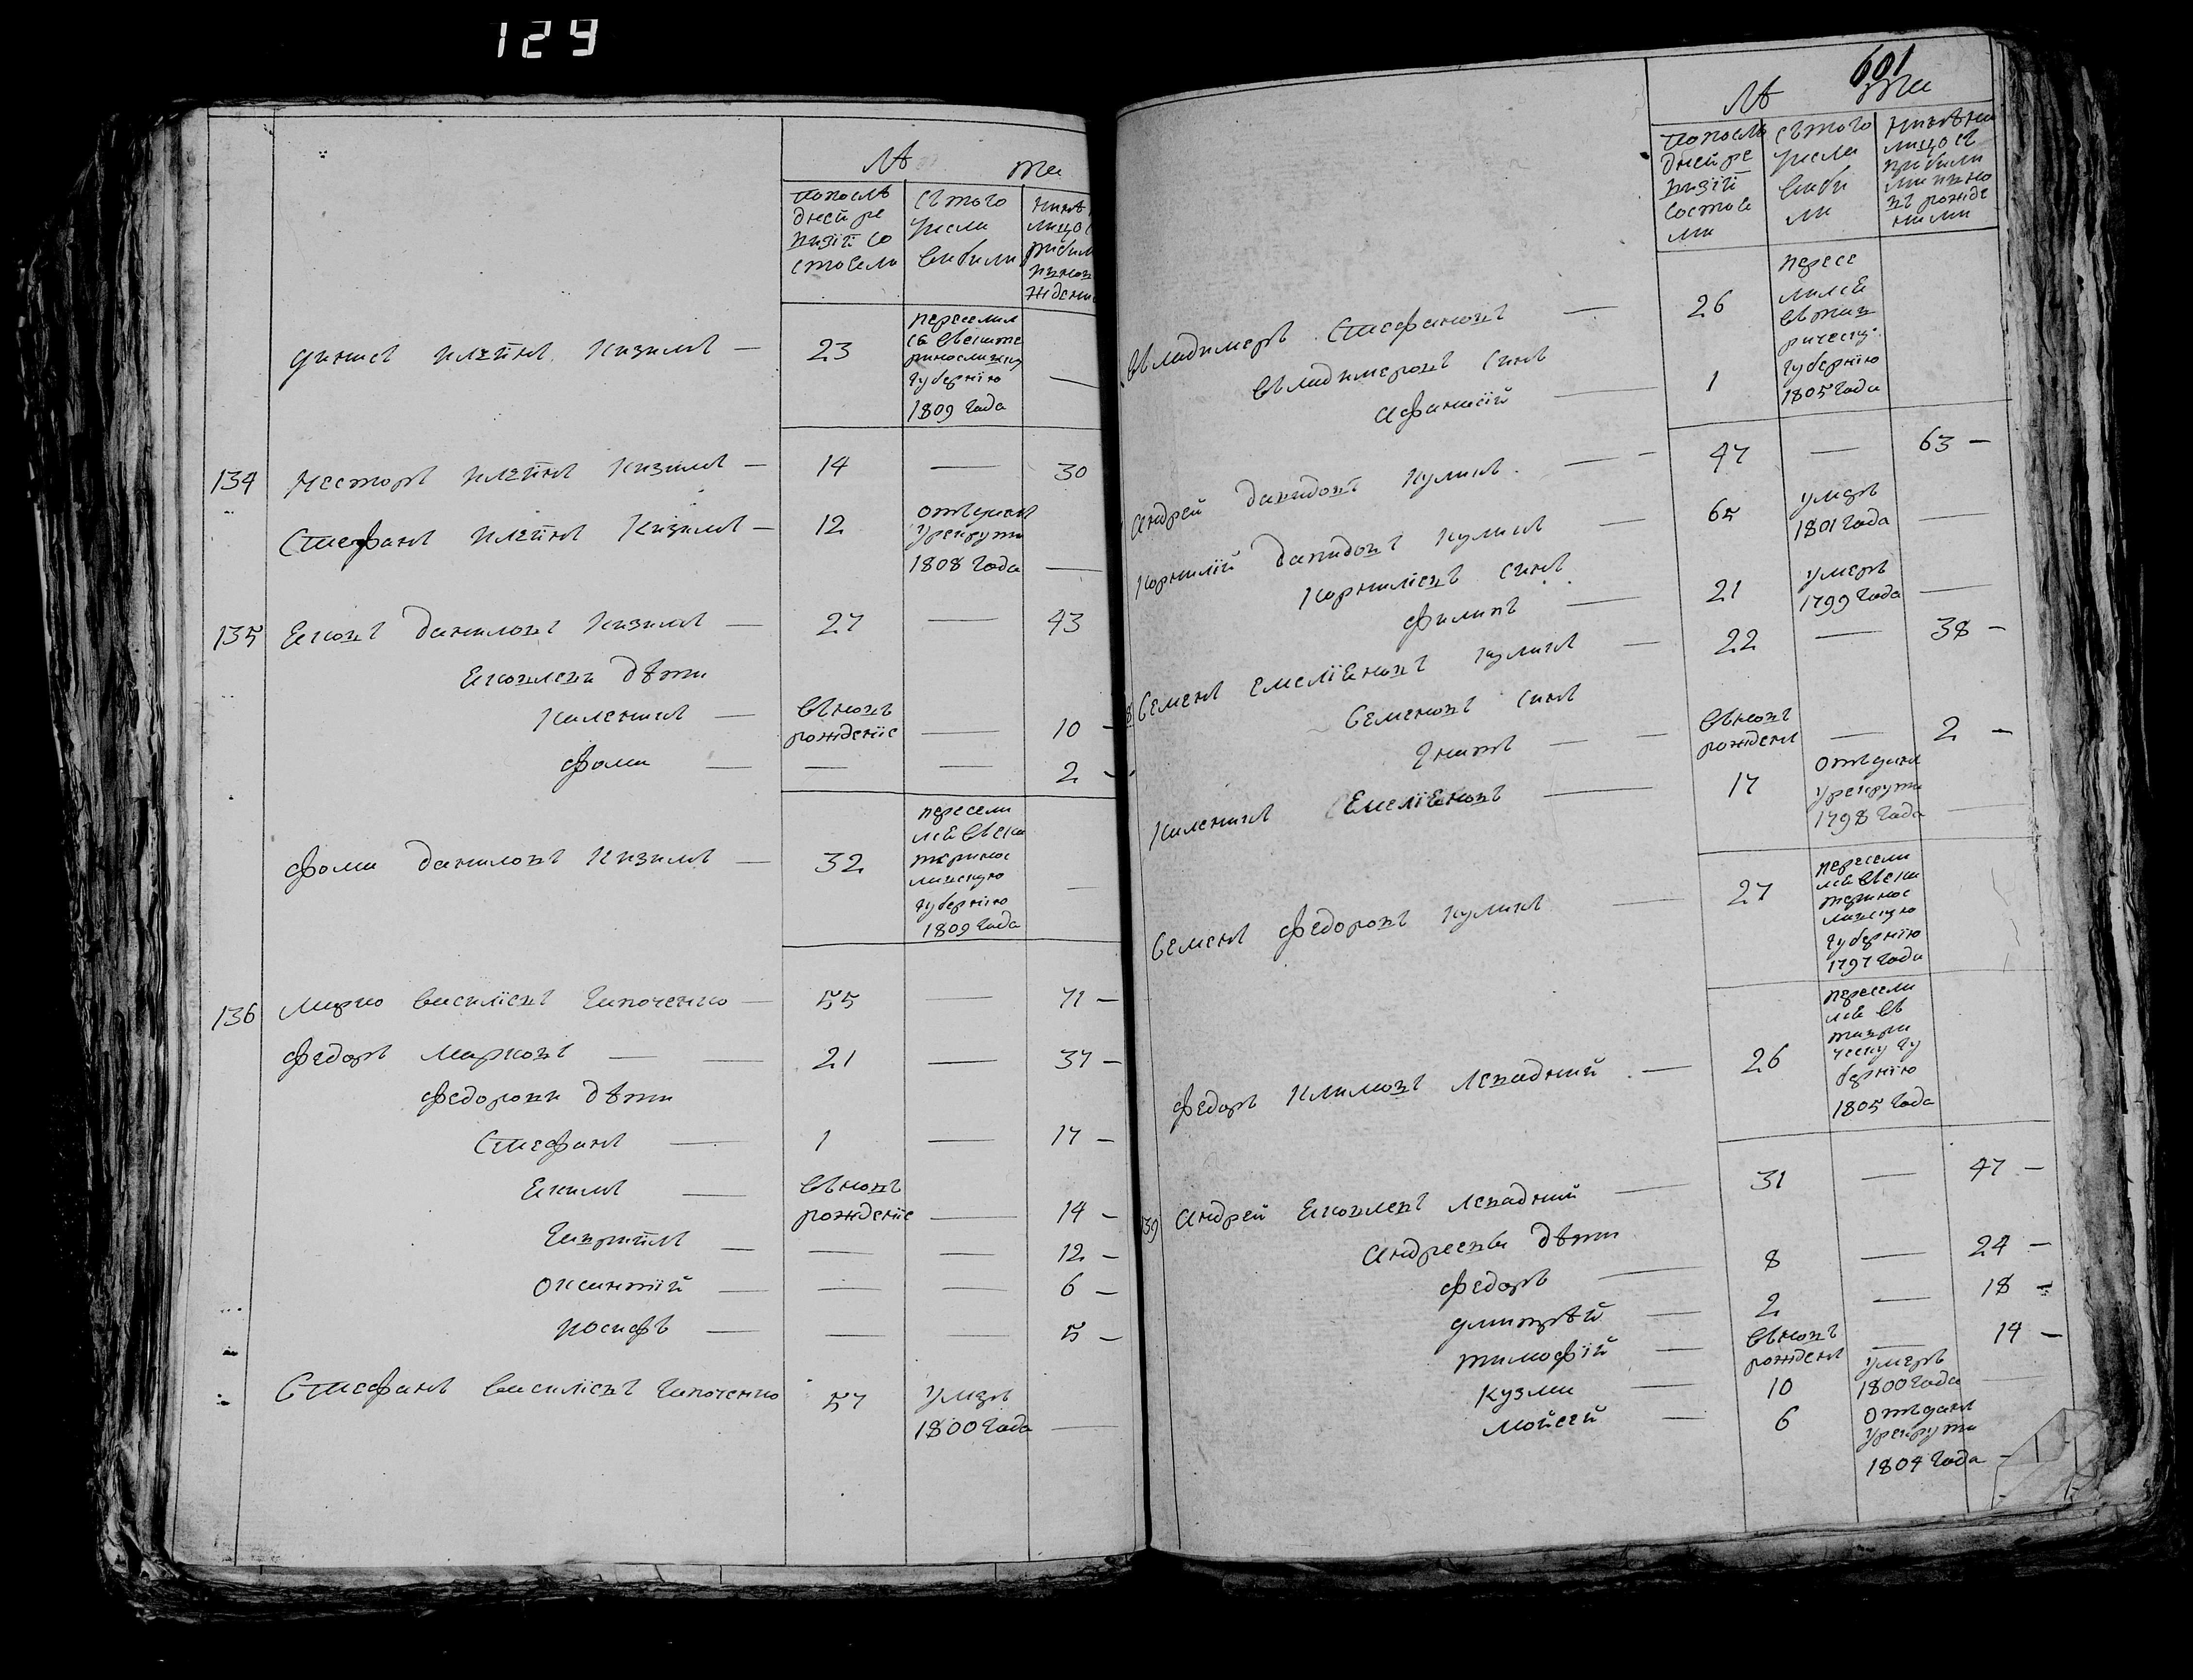 129
Лѣ та
попослѣ
дней ре
визіи со
стоѣало
съ того
числа
выбыли
нынѣ
лицо с
прибыл
вново
ждени
Динисъ Илѣинъ Кизимъ — 23
переселил
са въекате
ринославску
губернїю
1809 года —
134 Несторъ Илѣинъ Кизимъ — 14 — 30
Стефанъ Илѣинъ Кизимъ — 12
отъданъ
урекруты
1808 года —
135 Яковъ Даниловъ Кизимъ — 27 — 43
Яковлеви дѣти
Каленикъ — вновь
рожденїе — 10 —
Фома — — — 2 —
Фома Даниловъ Кизимъ — 32
пересели
лсѣ въека
теринос
лавскую
губернїю
1809 года —
136 Марко Василїевъ Гапоченко — 55 — 71 —
Федоръ Марковъ — — 21 — 37 —
Федорови дѣти
Стефанъ — 1 — 17 —
Якимъ — вновь
рожденїе — 14 —
Гавриїлъ — — — 12 —
Оксентїй — — — 6 —
Иосифъ — — — 5 —
Стефанъ Василїевъ Гапоченко 57
умеръ
1800 года —
601
Лѣ та
попослѣ
дней ре
визіи
состоѣ
ли
съ того
числа
выбы
ли
нынѣ на
лицо съ
прибыли
ми вно
вь рожде
ними
Въладимеръ Стефановъ — 26
пересе
лилсѣ
въ тав
рическу
губернїю
1805 года
Въладимеровъ синъ
Афанасїй — 1
Андрей Давидовъ Куликъ — — 47 — 63 —
Корнилїй Давидовъ Куликъ — 65
умеръ
1801 года —
Корнилїевъ синъ
Филипъ — 21
умеръ
1799 года —
8 Семенъ Емелїѣновъ Куликъ — 22 — 38 —
Семеновъ синъ
Гнатъ — — вновь
рожденъ — 2 —
Каленикъ Емелїѣновъ — 17
отъданъ
урекруты
1798 года —
Семенъ Федоровъ Куликъ — 27
пересели
лсѣ въека
теринос
лавскую
губернїю
1797 года
Федоръ Климовъ Левадний — 26
пересели
лсѣ въ
таври
ческу гу
бернїю
1805 года
39 Андрей Яковлевъ Левадний — 31 — 47 —
Андреевы дѣти
Федоръ — 8 — 24 —
Дмитрѣй — 2 — 18 —
Тимофїй — вновь
рожденъ — 14 —
Кузма — 10
умеръ
1800 года —
Мойсей — 6
отъданъ
урекруты
1804 года —